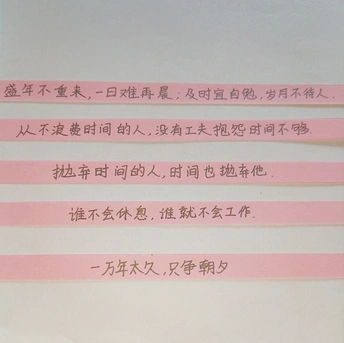 盛年不重来,一日难再晨;及时宜自勉,岁月不待人.
从不浪费时间的人,没有工夫抱怨时间不够.
抛弃时间的人,时间也抛弃他.
谁不会休息,谁就不会工作.
一万年太久,只争朝夕